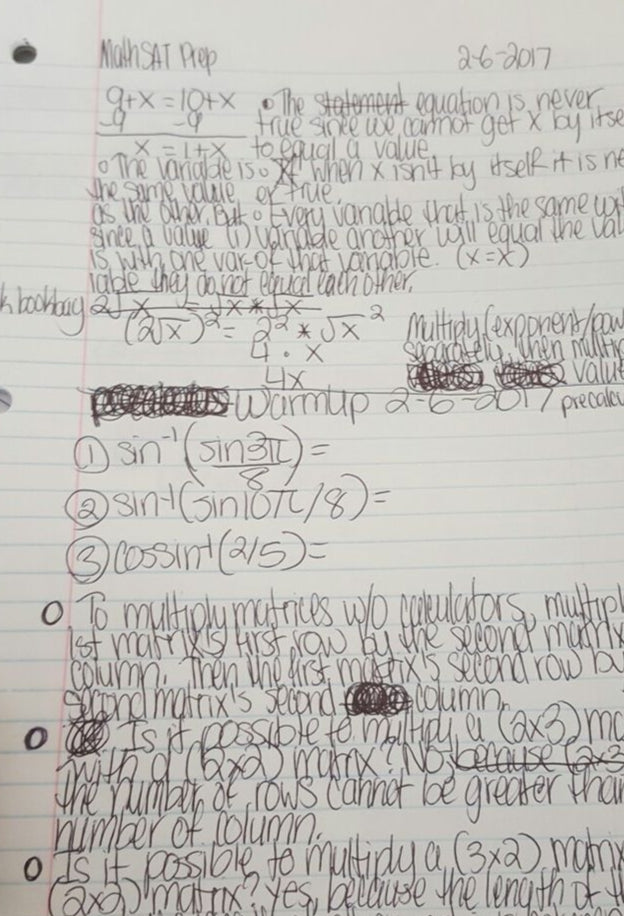 Math SAT Prep 2-6-2017
9+x = 10+x • The statement equation is never
-9 -9 true since we cannot get x by itse
x = 1+x to equal a value.
o The variable is o If when x isn't by itself it is ne
the same value or true.
as the other, but o Every variable that is the same wi
since a value (1) variable another will equal the val
is with one var- of that variable. (x=x)
iable they do not equal each other.
k bookbag 2√x = √x * √x
(2√x)² = 2² * √x² Multiply (exponent/pow
4 · x separately, then multip
4x value
Warmup 2-6-2017 precalcu
① sin⁻¹(sin 3π/8) =
② sin⁻¹(sin10π/8) =
③ cossin⁻¹(2/5) =
o To multiply matrices w/o calculators, multipl
1st matrix's first row by the second matrix
column. Then the first matrix's second row by
second matrix's second column.
o Is it possible to multiply a (2x3) ma
with a (2x2) matrix? No because (2x3
the number of rows cannot be greater than
number of column.
o Is it possible to multiply a (3x2) matrix
(2x2) matrix? Yes, because the length of t